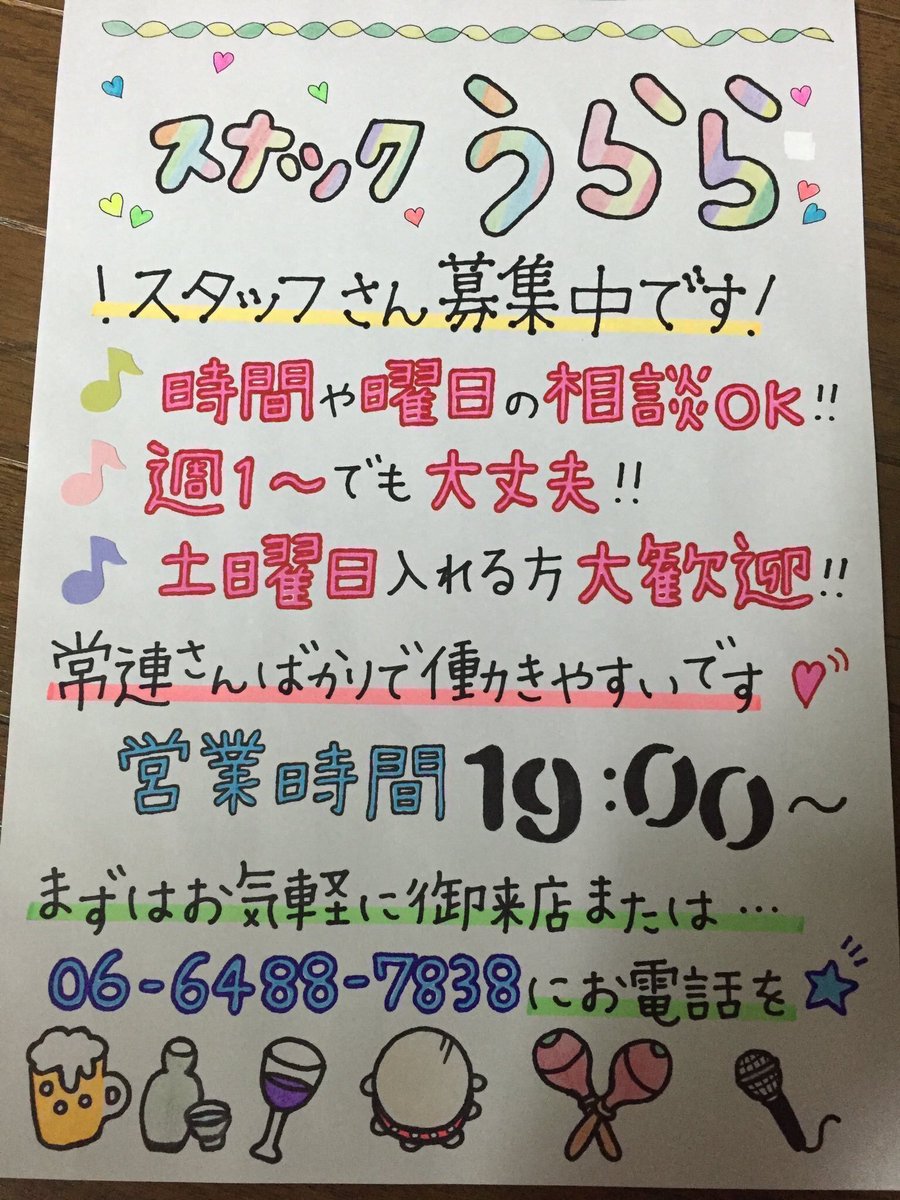 スナック うらら
！スタッフさん募集中です！
時間や曜日の相談OK!!
週1〜でも大丈夫!!
土日曜日入れる方大歓迎!!
常連さんばかりで働きやすいです
営業時間 19:00〜
まずはお気軽に御来店または…
06-6488-7838にお電話を